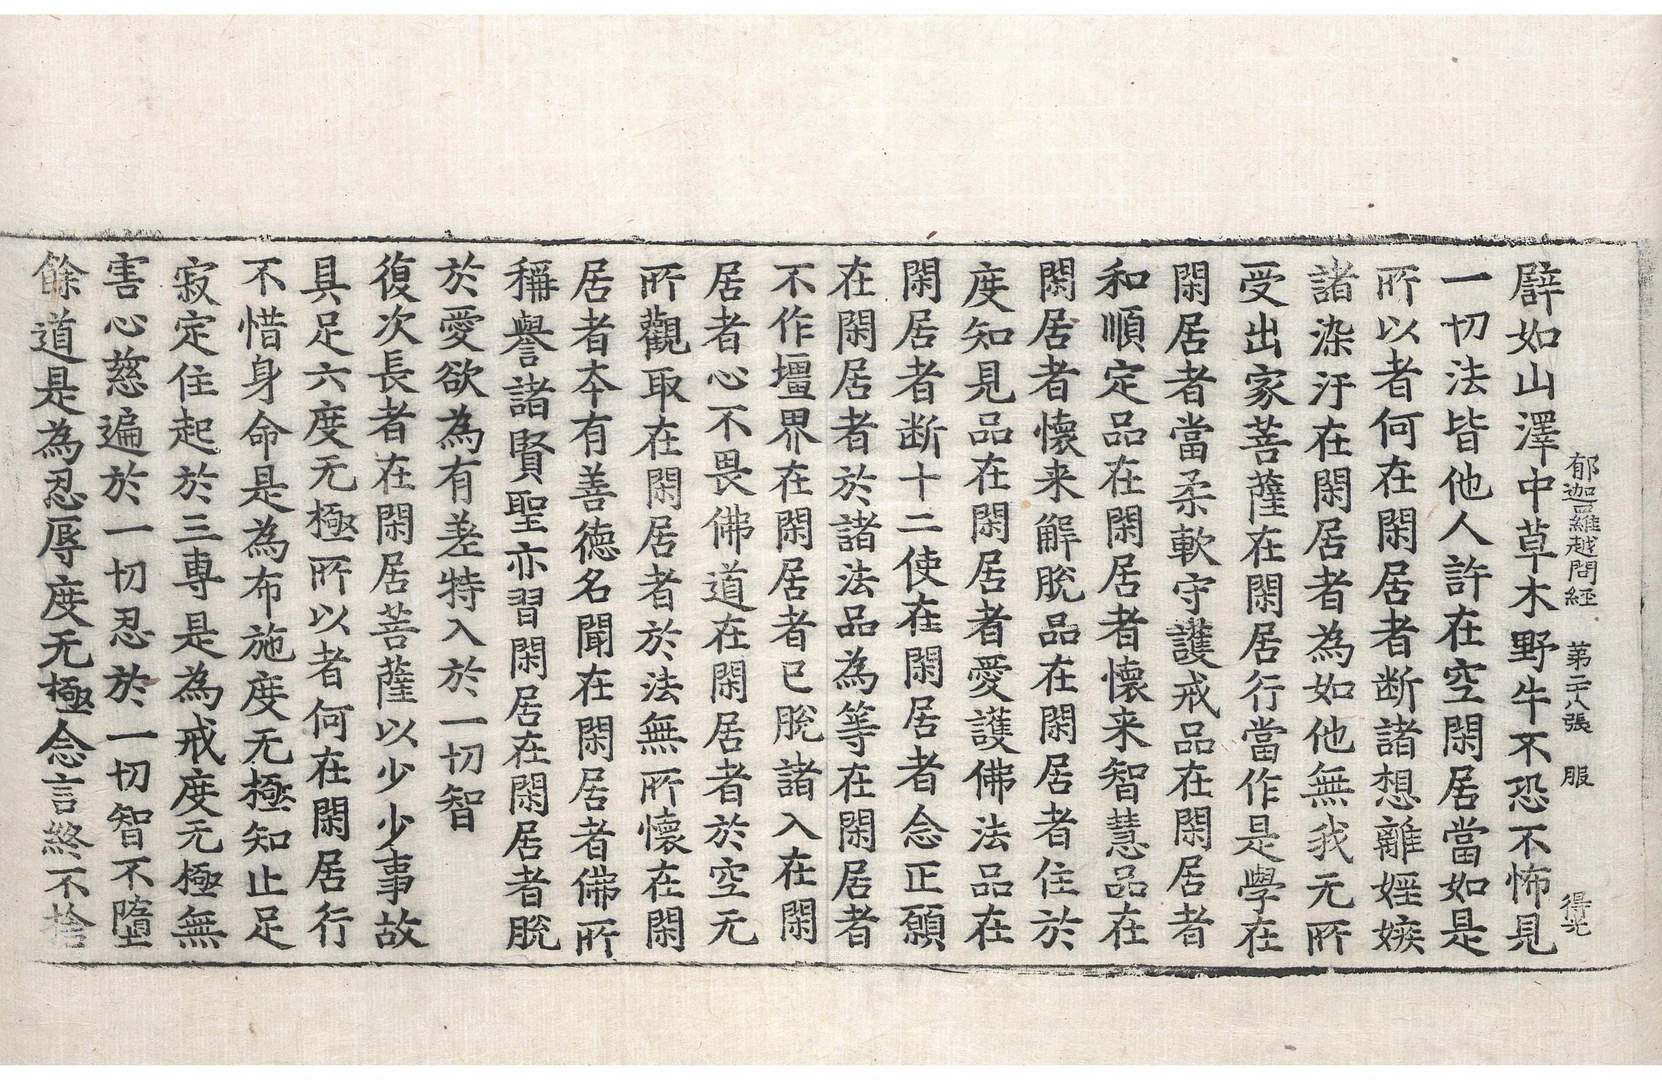 郁迦羅越問経 第二十八張 服 得光
譬如山澤中草木野牛不恐不怖見
一切法皆他人許在空閑居當如是
所以者何在閑居者断諸想離婬嫉
諸染汙在閑居者為如他無我无所
受出家菩薩在閑居行當作是學在
閑居者當柔軟守護戒品在閑居者
和順定品在閑居者懷来智慧品在
閑居者懷来解脫品在閑居者住於
度知見品在閑居者愛護佛法品在
閑居者断十二使在閑居者念正願
在閑居者於諸法品為等在閑居者
不作壃界在閑居者已脫諸入在閑
居者心不畏佛道在閑居者於空无
所觀取在閑居者於法無所懷在閑
居者夲有善德名聞在閑居者佛所
稱譽諸賢聖亦習閑居在閑居者脫
於愛欲為有差特入於一切智
復次長者在閑居菩薩以少少事故
具足六度无極所以者何在閑居行
不惜身命是為布施度无極知止足
寂定住起於三專是為戒度无極無
害心慈遍於一切忍於一切智不墮
餘道是為忍辱度无極念言終不捨